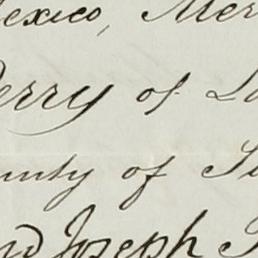 exico, Mer
erry of La
unty of
nd Joseph